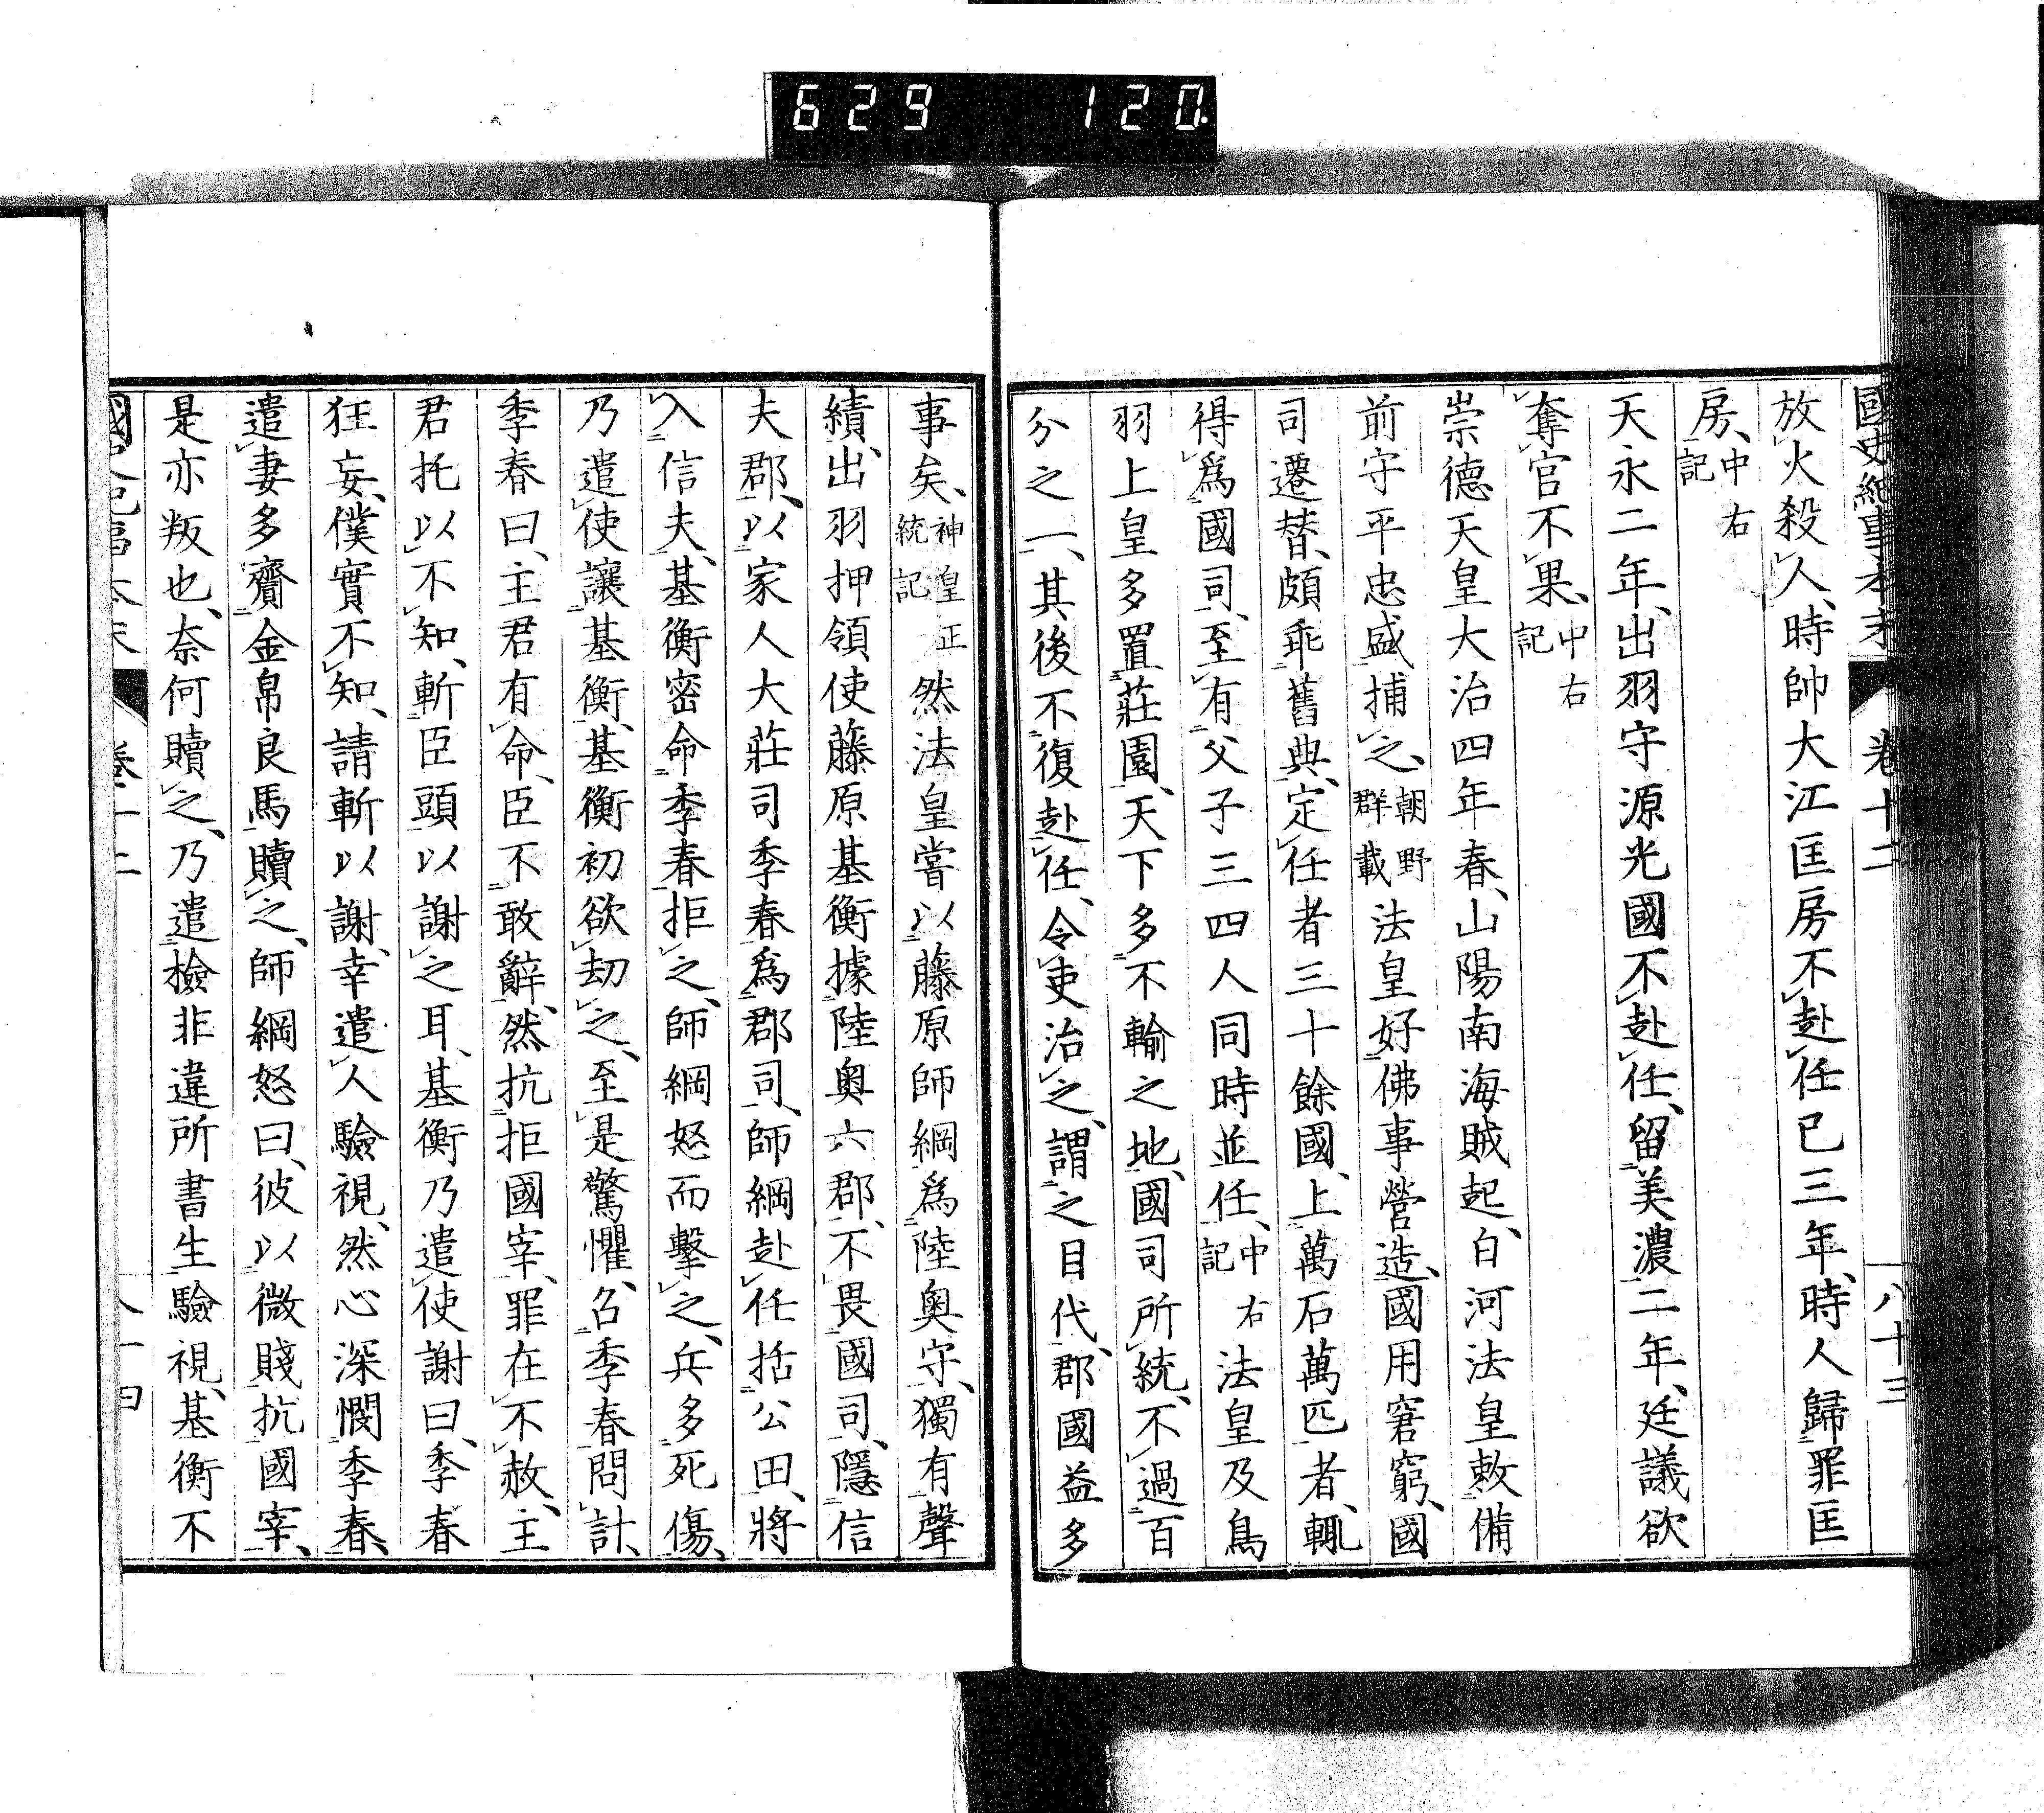 629 120
國史紀事本末 卷十二 八十三
放火殺人、時帥大江匡房不赴任已三年、時人歸罪匡
房、中右記
天永二年、出羽守源光國不赴任、留美濃二年、廷議欲
奪官不果、中右記
崇德天皇大治四年春、山陽南海賊起、白河法皇敕備
前守平忠盛捕之、朝野群載法皇好佛事營造、國用窘窮、國
司遷替、頗乖舊典、定任者三十餘國、上萬石萬匹者、輒
得爲國司、至有父子三四人同時並任、中右記法皇及鳥
羽上皇多置莊園、天下多不輸之地、國司所統、不過百
分之一、其後不復赴任、令吏治之、謂之目代、郡國益多
事矣、神皇正統記然法皇嘗以藤原師綱爲陸奧守、獨有聲
績、出羽押領使藤原基衡據陸奧六郡、不畏國司、隱信
夫郡、以家人大莊司季春爲郡司、師綱赴任括公田、將
入信夫、基衡密命季春拒之、師綱怒而擊之、兵多死傷、
乃遣使讓基衡、基衡初欲劫之、至是驚懼、召季春問計、
季春曰、主君有命、臣不敢辭、然抗拒國宰、罪在不赦、主
君托以不知、斬臣頭以謝之耳、基衡乃遣使謝曰、季春
狂妄、僕實不知、請斬以謝、幸遣人驗視、然心深憫季春、
遣妻多齎金帛良馬贖之、師綱怒曰、彼以微賤抗國宰、
是亦叛也、奈何贖之、乃遣檢非違所書生驗視、基衡不
國史紀事本末 卷十二 八十四